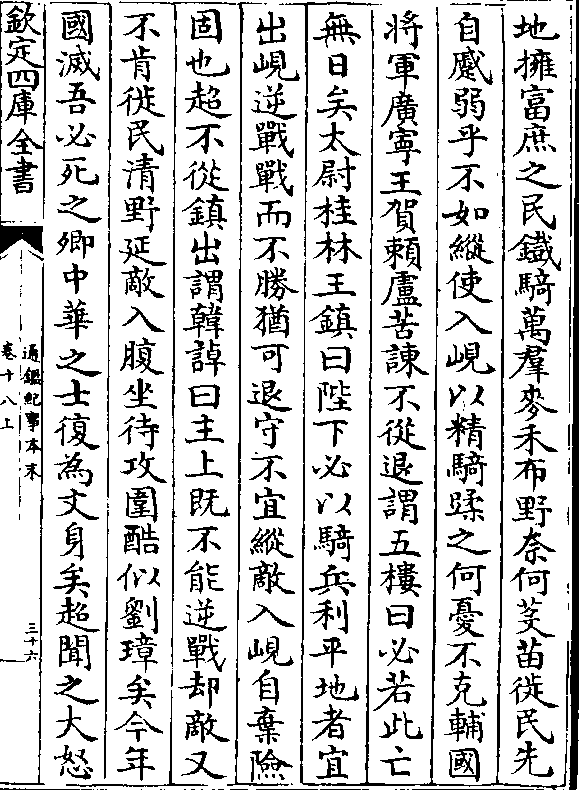 地擁富庶之民鐵騎萬羣麥禾布野奈何芟苗徙民先
自蹙弱乎不如縱使入峴以精騎蹂之何憂不克輔國
將軍廣寧王賀頼盧苦諫不從退謂五樓曰必若此亡
無日矣太尉桂林王鎮曰陛下必以騎兵利平地者宜
出峴逆戰戰而不勝猶可退守不宜縱敵入峴自棄險
固也超不從鎮出謂韓𧨳曰主上既不能逆戰却敵又
不肯徙民清野延敵入腹坐待攻圍酷似劉璋矣今年
國滅吾必死之卿中華之士復為文身矣超聞之大怒
欽定四庫全書
通鑑紀事本末
卷十八上
三十六